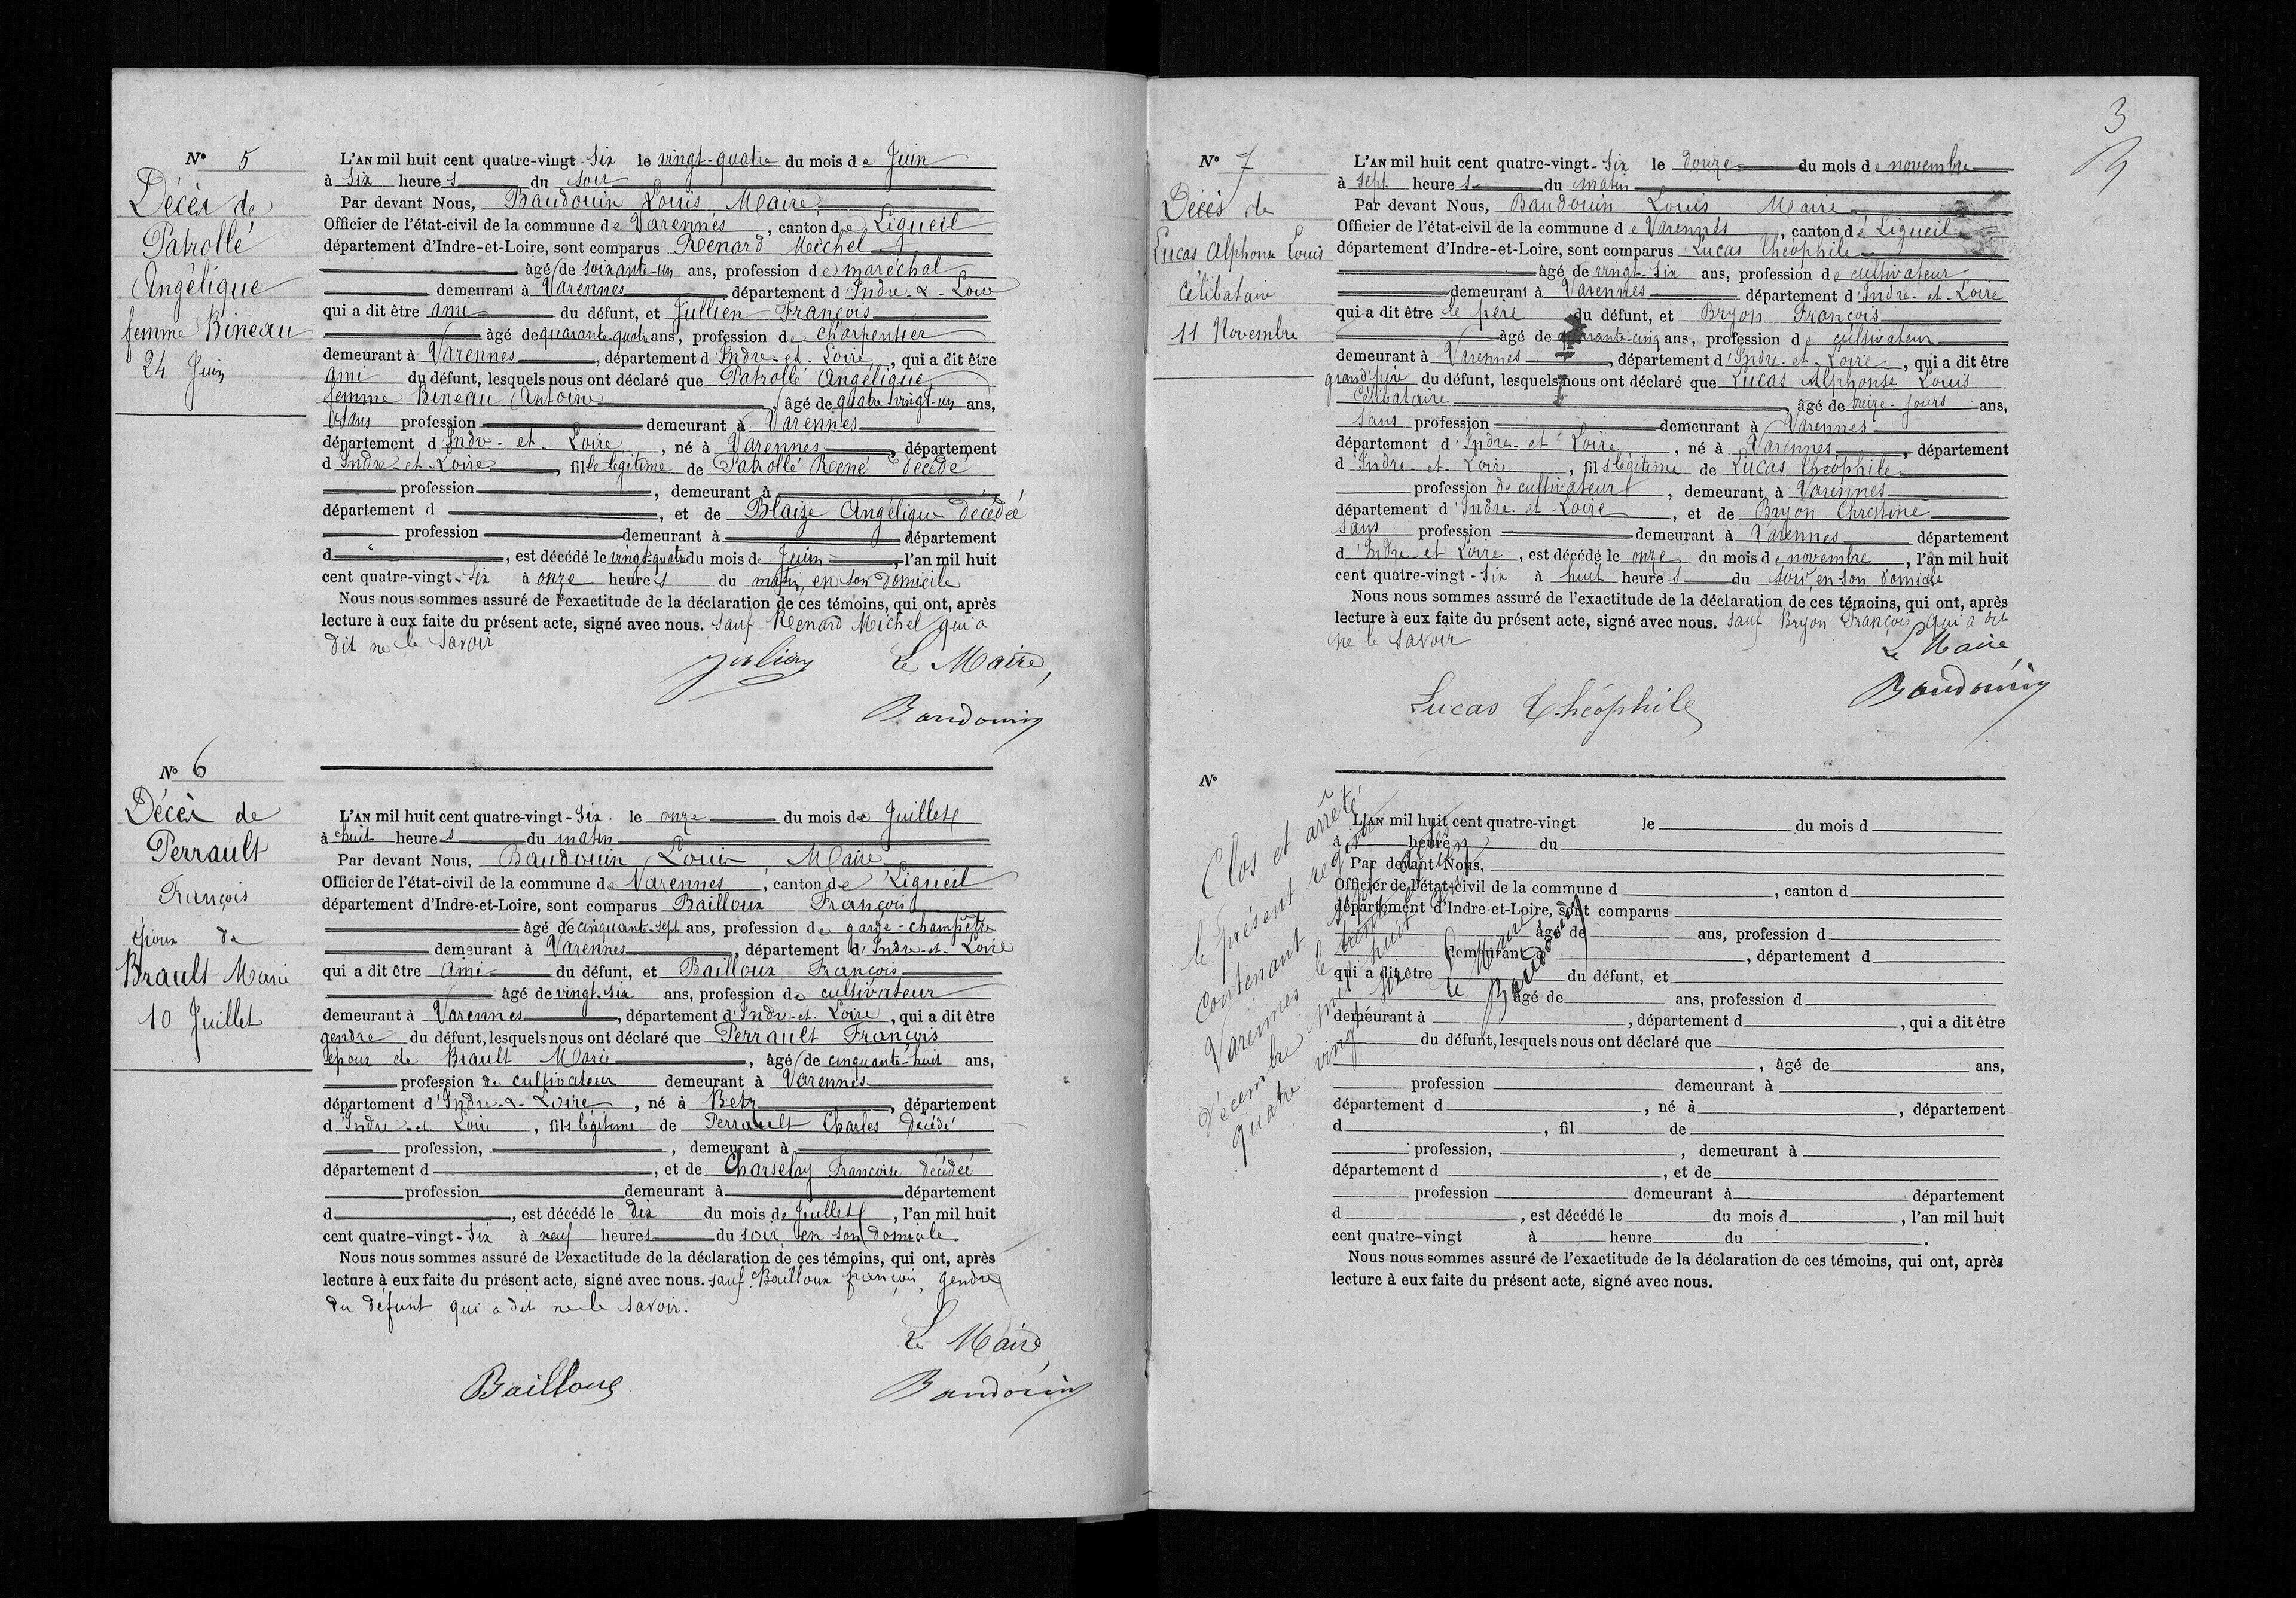 N° 5
Décès de
Patrollé
Angélique
femme Bineau
24 Juin
L'AN mil huit cent quatre-vingt-six le vingt-quatre du mois de Juin
à six heures du soir
Par devant Nous, Baudouin Louis Maire
Officier de l'état-civil de la commune de Varennes, canton de Ligueil
département d'Indre-et-Loire, sont comparus Renard Michel
âgé de soixante-un ans, profession de maréchal
demeurant à Varennes département d'Indre-&-Loire
qui a dit être ami du défunt, et Jullien François
âgé de quarante-quatre ans, profession de charpentier
demeurant à Varennes, département d'Indre-et-Loire, qui a dit être
ami du défunt, lesquels nous ont déclaré que Patrollé Angélique
femme Bineau Antoine, âgé de quatre vingt-un ans,
sans profession demeurant à Varennes
département d'Indre-et-Loire, né à Varennes, département
d'Indre-et-Loire, fille légitime de Patrollé René décédé
profession, demeurant à
département d, et de Blaize Angélique décédée
profession demeurant à département
d, est décédé le vingt-quatre du mois de Juin, l'an mil huit
cent quatre-vingt-six à onze heures du matin, en son domicile
Nous nous sommes assuré de l'exactitude de la déclaration de ces témoins, qui ont, après
lecture à eux faite du présent acte, signé avec nous. sauf Renard Michel qui a
dit ne le savoir
Jullien Le Maire,
Baudouin
N° 6
Décès de
Perrault
François
époux de
Brault Marie
10 Juillet
L'AN mil huit cent quatre-vingt-six. le onze du mois de Juillet
à huit heures du matin
Par devant Nous, Baudouin Louis Maire
Officier de l'état-civil de la commune de Varennes, canton de Ligueil
département d'Indre-et-Loire, sont comparus Bailloux François
âgé de cinquante-sept ans, profession de garde-champêtre
demeurant à Varennes, département d'Indre-et-Loire
qui a dit être ami du défunt, et Bailloux François
âgé de vingt-six ans, profession de cultivateur
demeurant à Varennes, département d'Indre-et-Loire, qui a dit être
gendre du défunt, lesquels nous ont déclaré que Perrault François
époux de Brault Marie, âgé de cinquante-huit ans,
profession de cultivateur demeurant à Varennes
département d'Indre-&-Loire, né à Betz, département
d'Indre-et-Loire, fils légitime de Perrault Charles décédé
profession, demeurant à
département d, et de Charselay Françoise décédée
profession demeurant à département
d, est décédé le dix du mois de Juillet, l'an mil huit
cent quatre-vingt-six à neuf heures du soir en son domicile
Nous nous sommes assuré de l'exactitude de la déclaration de ces témoins, qui ont, après
lecture à eux faite du présent acte, signé avec nous. sauf Bailloux françois, gendre
du défunt qui a dit ne le savoir.
Le Maire
Bailloux Baudouin
3
N° 7
Décès de
Lucas Alphonse Louis
Célibataire
11 Novembre
L'AN mil huit cent quatre-vingt-six le douze du mois de novembre
à sept heures du matin
Par devant Nous, Baudouin Louis Maire
Officier de l'état-civil de la commune de Varennes, canton de Ligueil
département d'Indre-et-Loire, sont comparus Lucas Théophile
âgé de vingt-six ans, profession de cultivateur
demeurant à Varennes département d'Indre-et-Loire
qui a dit être le père du défunt, et Bryon François
âgé de quarante-cinq ans, profession de cultivateur
demeurant à Varennes, département d'Indre-et-Loire, qui a dit être
grand'père du défunt, lesquels nous ont déclaré que Lucas Alphonse Louis
Célibataire, âgé de treize-jours ans,
sans profession demeurant à Varennes
département d'Indre-et-Loire, né à Varennes, département
d'Indre-et-Loire, fils légitime de Lucas Théophile
profession de cultivateur, demeurant à Varennes
département d'Indre-et-Loire, et de Bryon Christine
sans profession demeurant à Varennes département
d'Indre-et-Loire, est décédé le onze du mois de novembre, l'an mil huit
cent quatre-vingt-six à huit heures du soir, en son domicile
Nous nous sommes assuré de l'exactitude de la déclaration de ces témoins, qui ont, après
lecture à eux faite du présent acte, signé avec nous. sauf Bryon François qui a dit
ne le savoir
Le Maire
Lucas Théophile Baudouin
N°
L'AN mil huit cent quatre-vingt le du mois d
à heure du
Par devant Nous,
Officier de l'état-civil de la commune d, canton d
département d'Indre-et-Loire, sont comparus
âgé de ans, profession d
demeurant à, département d
qui a dit être du défunt, et
âgé de ans, profession d
demeurant à, département d, qui a dit être
du défunt, lesquels nous ont déclaré que
, âgé de ans,
profession demeurant à
département d, né à, département
d, fil de
profession, demeurant à
département d, et de
profession demeurant à département
d, est décédé le du mois d, l'an mil huit
cent quatre-vingt à heure du.
Nous nous sommes assuré de l'exactitude de la déclaration de ces témoins, qui ont, après
lecture à eux faite du présent acte, signé avec nous.
Clos et arrêté
le présent registre
contenant sept actes
Varennes le trente un
décembre mil huit cent
quatre-vingt six
Le Maire
Baudouin